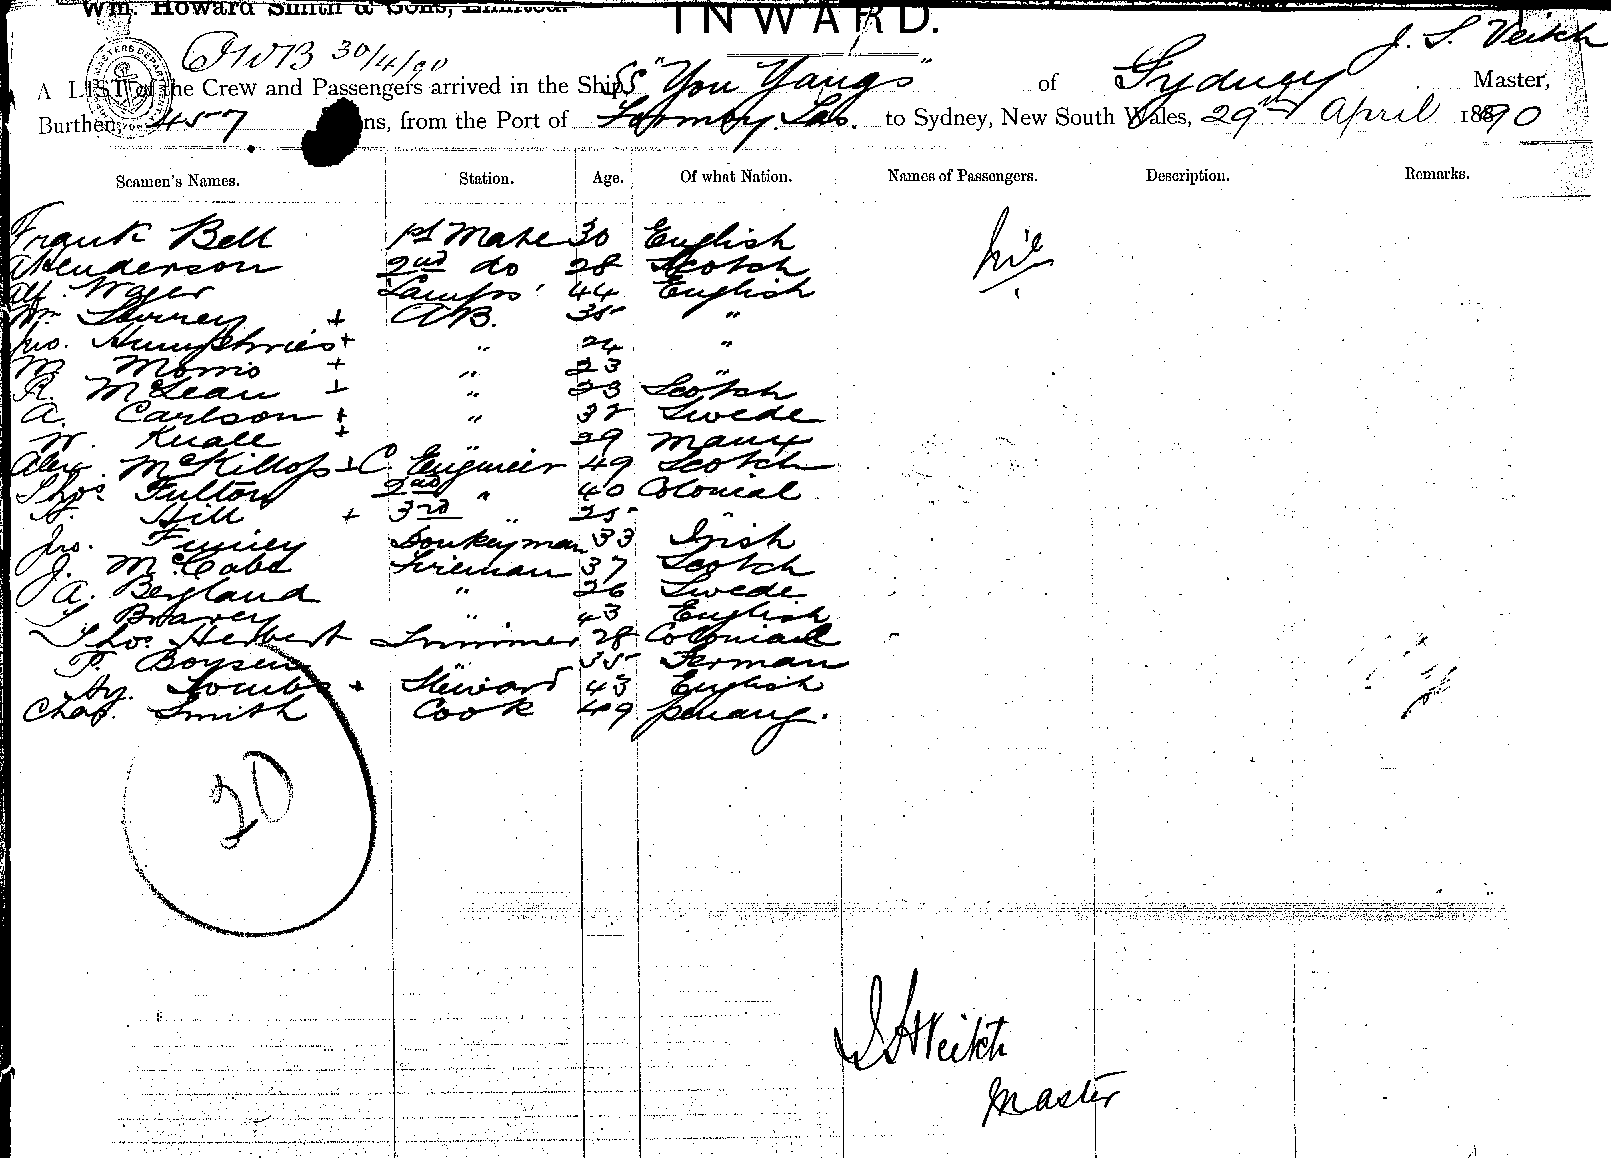 Wm. Howard Smith & Sons, Limited.
INWARD.
30/4/90
J. S. Veitch
A LIST of the Crew and Passengers arrived in the Ship SS "You Yangs" of Sydney Master,
Burthen 457 Tons, from the Port of Formby Tas. to Sydney, New South Wales, 29th April 1890
Seamen's Names. Station. Age. Of what Nation. Names of Passengers. Description. Remarks.
Frank Bell 1st Mate 30 English nil
A Henderson 2nd do 28 Scotch
Alf. Lamps 44 English
Wm + A B. 35 "
Jno. Humphries + " 24 "
M Morris + " 23 "
R. McLean + " 23 Scotch
A. Carlson + " 32 Swede
W. + " 29 Manx
Alex. McKillop + C Engineer 49 Scotch
Thos Fulton 2nd " 40 Colonial
Hill + 3rd " 25 "
Jno. Finney Donkeyman 33 Irish
J. McCabe Fireman 37 Scotch
A. Bergland " 26 Swede
Bravery " 43 English
Thos. Herbert Trimmer 28 Colonial
P. Boysen " 35 German
Hy. Tombs + Steward 43 English
Chas. Smith Cook 49 Penang.
20
Veitch
Master